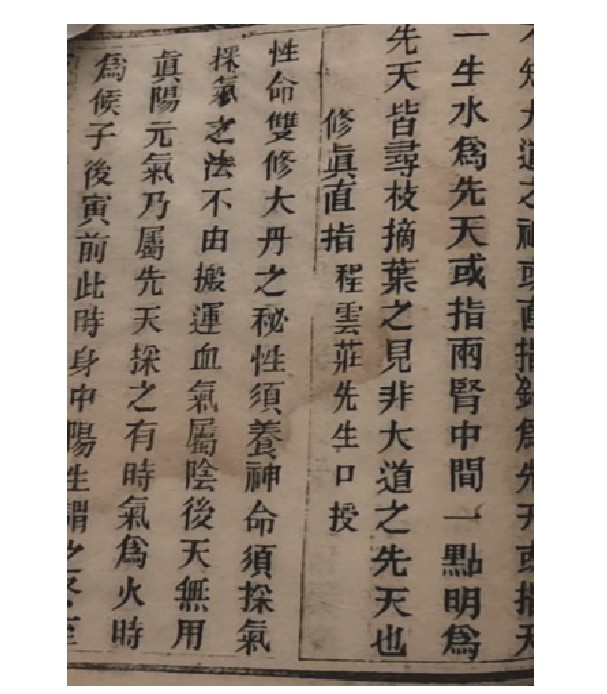 知大道之神或直指鉛爲先天或指天
一生水爲先天或指兩腎中間一點明爲
先天皆尋枝摘葉之見非大道之先天也
修眞直指 程雲莊先生口授
性命雙修大丹之秘性須養神命須採氣
採氣之法不由搬運血氣屬陰後天無用
眞陽元氣乃屬先天採之有時氣爲火時
爲候子後寅前此時身中陽生謂之冬至